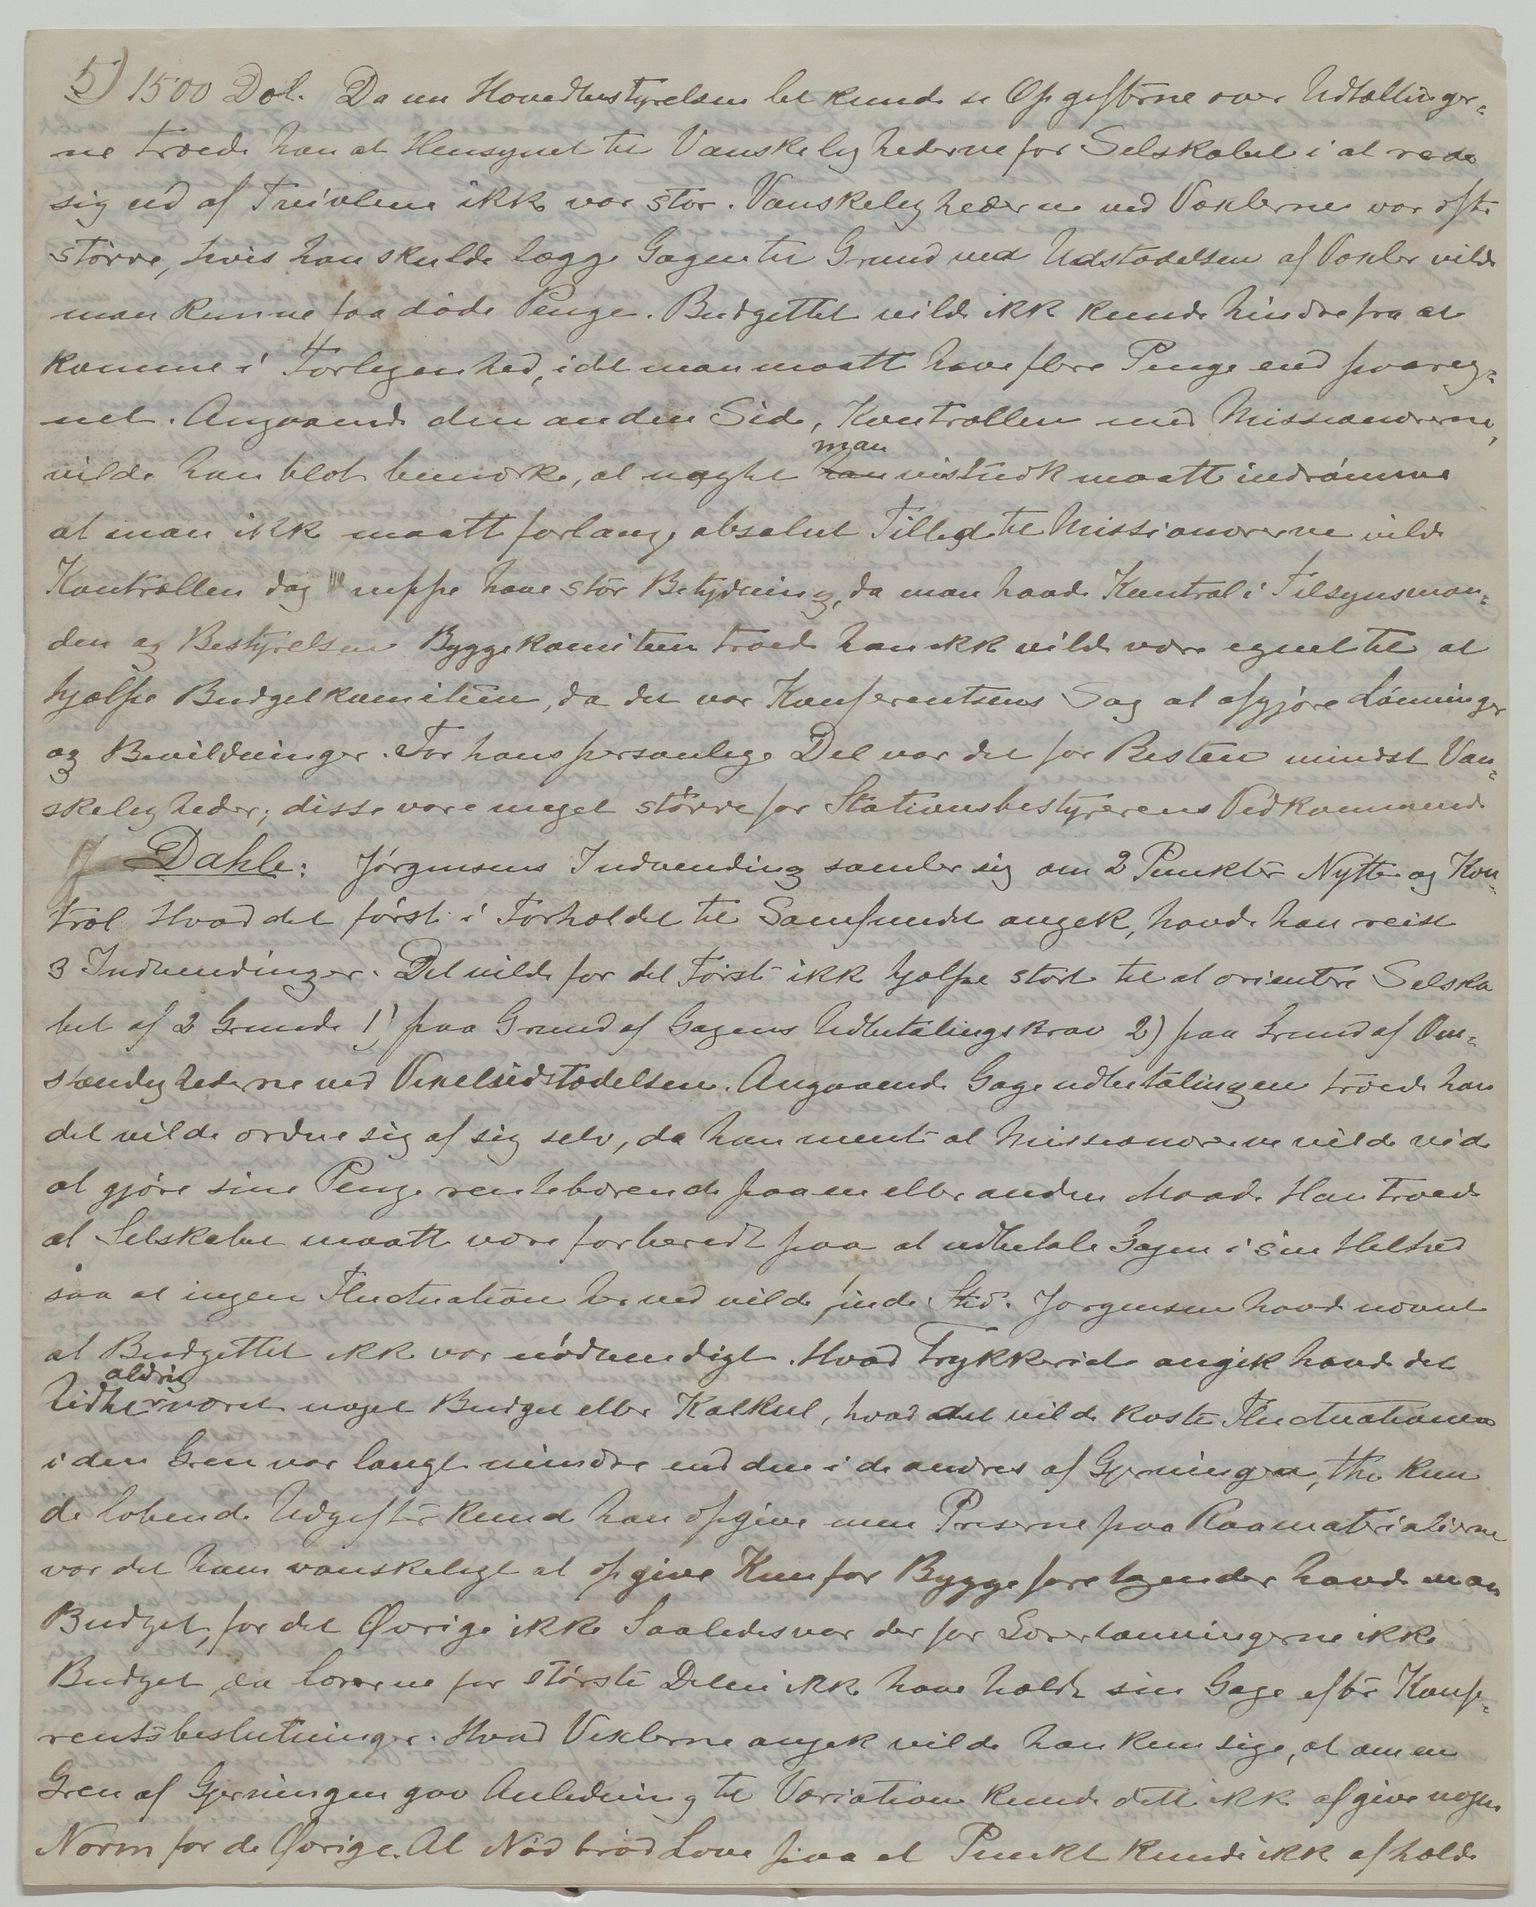 5) 1500 Dol. Da nu Hovedbestyrelsen let kunde se Opgifterne over Udtællinger-
ne troede han at Hensynet til Vanskelighederne for Selskabet i at rede
sig ud af Tvivlene ikke var stor. Vanskelighederne ved Vexlerne var ofte
større, hvis han skulde lægge Gagen til Grund ved Udstædelsen af Vexler vilde
man kunne faa døde Penge. Budgettet vilde ikke kunde hindre fra at
komme i Forlegenhed, idet man maatte have flere Penge end paareg-
net. Angaaende den anden Side, Kontrollen med Missionærerne,
vilde han blot bemærke, at uagtet man vistnok maatte indrømme
at man ikke maatte forlange absolut Tillid til Missionærerne vilde
Kontrollen dog neppe have stor Betydning, da man havde Kontrol i Tilsynsman-
den og Bestyrelsen Byggekomiteen troede han ikke vilde være egnet til at
hjælpe Budgetkomiteen, da det var Konferentsens Sag at afgjøre Lønninger
og Bevilgninger. For hans personlige Del var det for Resten mindst Van-
skeligheder; disse vare meget større for Stationsbestyrerens Vedkommende
Dahle: Jørgensens Indvending samler sig om 2 Punkter Nytte og Kon-
trol Hvad det først i Forholdet til Samfundet angik, havde han reist
3 Indvendinger. Det vilde for det Første ikke hjælpe stort til at orientere Selska
bet af 2 Grunde 1) paa Grund af Gagens Udbetalingskrav 2) paa Grund af Om-
stændighederne ved Vexeludstædelsen. Angaaende Gageudbetalingen troede han
det vilde ordne sig af sig selv, da han mente at Missionærerne vilde vide
at gjøre sine Penge rentebærende paa en eller anden Maade Han troede
at Selskabet maatte være forberedt paa at udbetale Gagen i sin Helhed
saa at ingen Fluctuation herved vilde finde Sted. Jørgensen havde nævnt
at Budgettet ikke var nødvendigt. Hvad Trykkeriet angik havde det
hidtil aldrig været noget Budget eller Kalkul, hvad det vilde koste Fluctuationen
i den Gren var langt mindre end den i de andres af Gjerningen, thi kun
de løbende Udgifter kunde han opgive men Priserne paa Raamaterialierne
var det ham vanskeligt at opgive Kun for Byggeforetagender havde man
Budget, for det Øvrige ikke Saaledes var der for Lærerlønningerne ikke
Budget, da Lærerne for største Delen ikke have hævet sin Gage efter Konfe-
rentsbeslutninger. Hvad Vexlerne angik vilde han kun sige, at om en
Gren af Gjerningen gav Anledning til Variation kunde dette ikke afgive nogen
Norm for de Øvrige. At Nød brød Love paa et Punkt kunde ikke afholde